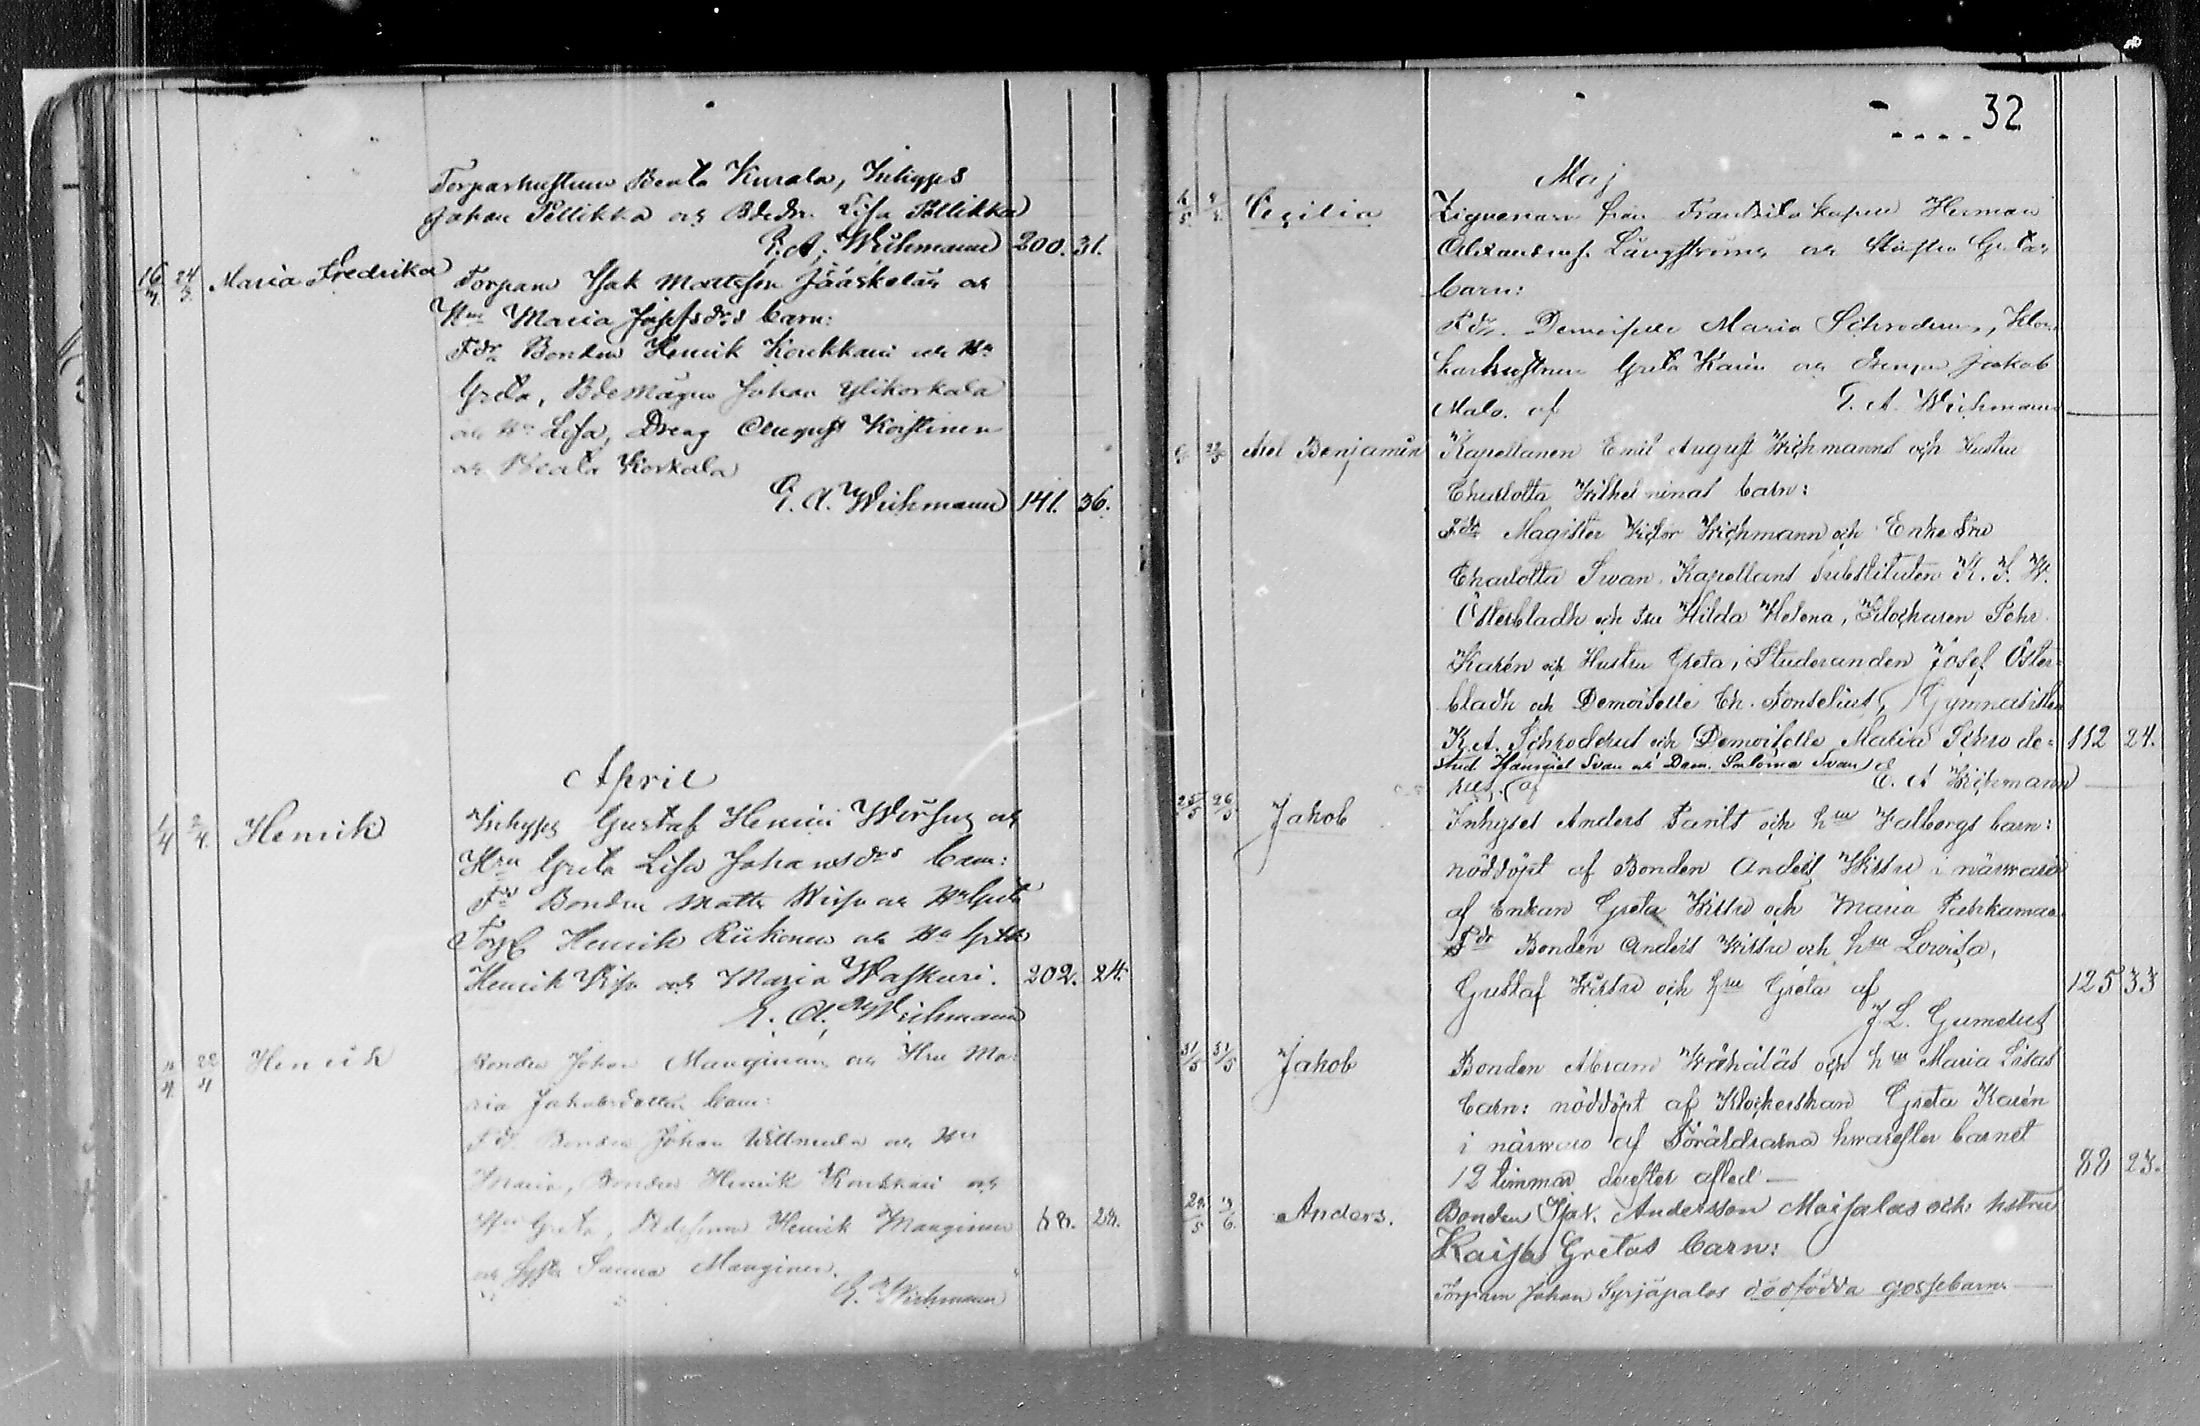 Torparhustrun Beata Kurala, Inhyggs
Johan Pellikka och Bdedr. Lisa Pellikka
E. A. Wichmann 200. 31.
16/3 24/3 Maria Fredrika Torparn Isak Mattsson Jääskeläs och
Hru Maria Josefsdrs barn:
Fdr Bonden Henrik Konkkari och Hu
Greta, Bdemågen Johan Ylikorkala
och Hu Lisa, Dreng August Koistinen
och Beata Korkala
E. A. Wichmann 141. 36.
April
1/4 2/4 Henrik Inhyggs Gustaf Henric och
Hru Greta Lisa Johansdrs barn:
Fdr Bonden Matts och Hu Greta
Torp Henrik Riikonen och Hu Greta
Henrik och Maria Waskuri. 202. 24.
E. A. Wichmann
4 22/4 Henrik Bonden Johan Manginens och Hru Ma-
ria Jakobsdotters barn:
Fdr Bonden Johan och Hru
Maria, Bonden Henrik Konkkari och
Hru Greta, Henrik Manginen 88. 28.
och Syster Sanna Manginen.
E. Wichmann
32
Maj
5 Cecilia Ziguenaren från Frantsila kapell Herman
Alexanders. Långströms och Hustru Gretas
barn:
Fdr. Demoiselle Maria Schroderus, Kloc-
karhustrun Greta Karén och Jakob
Malo. af E. A. Wichmann
6 22/5 Axel Benjamin Kapellanen Emil August Wichmanns och Hustru
Charlotta Wilhelminas barn:
Fdr Magister Victor Wichmann och Enke Fru
Charlotta Svan, Kapellans Substituten K. F. W.
Österbladh och Fru Hilda Helena, Klockaren Pehr
Karén och Hustru Greta, Studeranden Josef Öster-
bladh och Demoiselle Ch. Fonselius, Gymnasisten
K. A. Schroderus och Demoiselle Maria Schrode- 112 24.
Stud. Svan och Dem. Salome Svan
rus, af E. A Wichmann
25/5 26/5 Jakob Inhyses Anders Pants och hru Valborgs barn:
nöddöpt af Bonden Anders Wistre i närwaro
af Enkan Greta Wistre och Maria
Fdr Bonden Anders Wistre och hru Lovisa,
Gustaf Wistre och hru Greta af 125 33
J. L. Gumerus
31/5 31/5 Jakob Bonden Abram och hru Maria Lisas
barn: nöddöpt af Klockerskan Greta Karén
i närwaro af Föräldrarna hwarefter barnet
12 timmar derefter afled — 88 23.
28/5 3/6 Anders. Bonden Isak Andersson Maijalas och hstru
Kaisa Gretas barn:
Torparn Johan Syrjäpalos dödfödda gossebarn. —